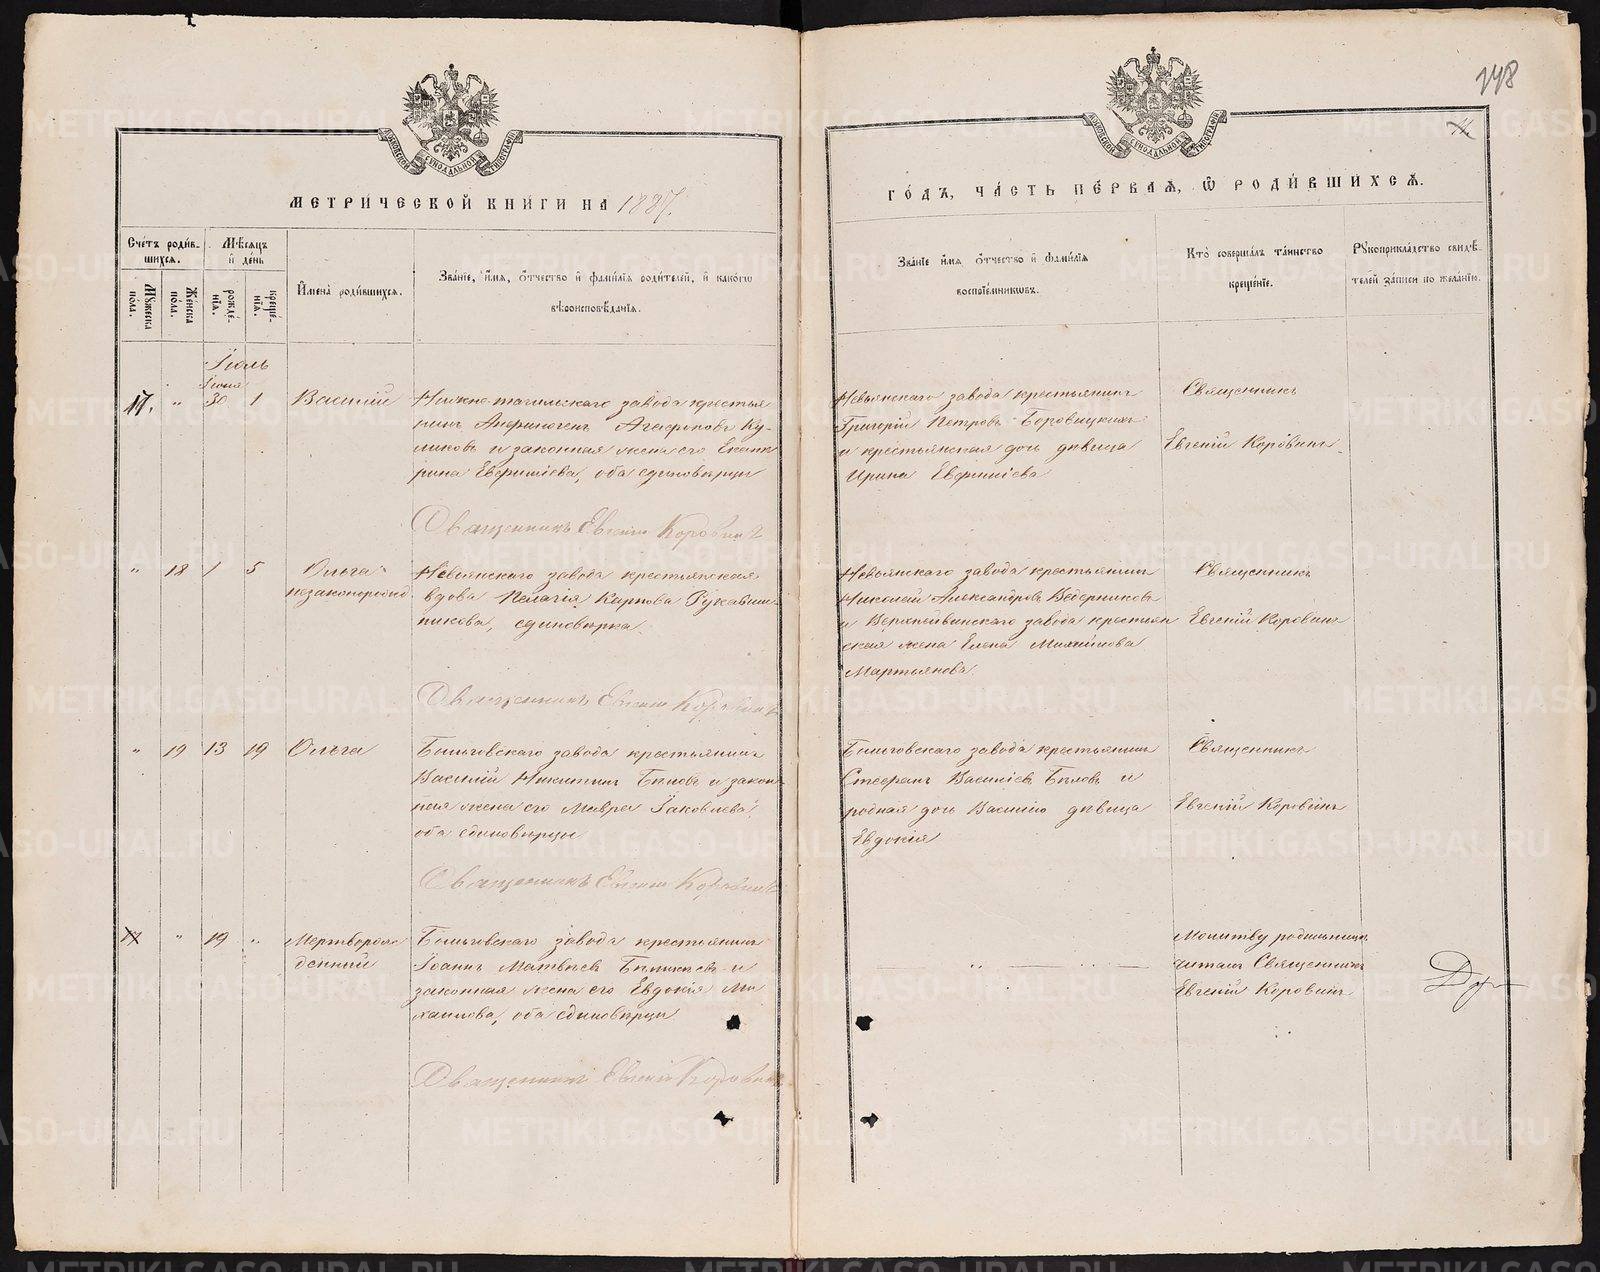 148
11
МЕТРИЧЕСКОЙ КНИГИ НА 1887.
ГОДЪ, ЧАСТЬ ПЕРВАЯ, Ѿ РОДИВШИХСЯ.
Счетъ родив-
шихся.
Мужеска пола.
Женска пола.
Мѣсяцъ
и день
рожде-
нія.
креще-
нія.
Имена родившихся.
Званіе, имя, отчество и фамилія родителей, и какогѡ
вѣроисповѣданія.
Званіе имя отчество и фамилія
воспріемниковъ.
Кто совершалъ таинство
крещеніе.
Рукоприкладство свидѣ-
телей записи по желанію.
Іюль
Іюня
17. " 30 1 Василій
Нижне-тагильскаго завода крестья
нинъ Анфиногенъ Агафоновъ Ку-
ликовъ и законная жена его Екате
рина Евфиміева, оба единовѣрцы
Священникъ Евгеній Коровинъ
Невьянскаго завода крестьянинъ
Григорій Петровъ Боровицкихъ
и крестьянская дочь дѣвица
Ирина Евфиміева
Священникъ
Евгеній Коровинъ.
" 18 1 5 Ольга
незаконорожд
Невьянскаго завода крестьянская
вдова Пелагія Карпова Рукавиш
никова, единовѣрка.
Священникъ Евгеній Коровинъ
Невьянскаго завода крестьянинъ
Николай Александровъ Ведерниковъ
и Верхнейвинскаго завода крестьян
ская жена Елена Михайлова
Мартьянова.
Священникъ
Евгеній Коровинъ
" 19 13 19 Ольга
завода крестьянинъ
Василій Никитинъ Бѣловъ и закон-
ная жена его Мавра Іаковлева,
оба единовѣрцы
Священникъ Евгеній Коровинъ
завода крестьянинъ
Стефанъ Василіевъ Бѣловъ и
родная дочь Василію дѣвица
Евдокія
Священникъ
Евгеній Коровинъ
" 19 " Мертворож
денный
завода крестьянинъ
Іоаннъ Матвѣевъ и
законная жена его Евдокія Ми
хаилова, оба единовѣрцы
Священникъ Евгеній Коровинъ
Молитву родильницѣ
читалъ Священникъ
Евгеній Коровинъ
METRIKI.GASO-URAL.RU